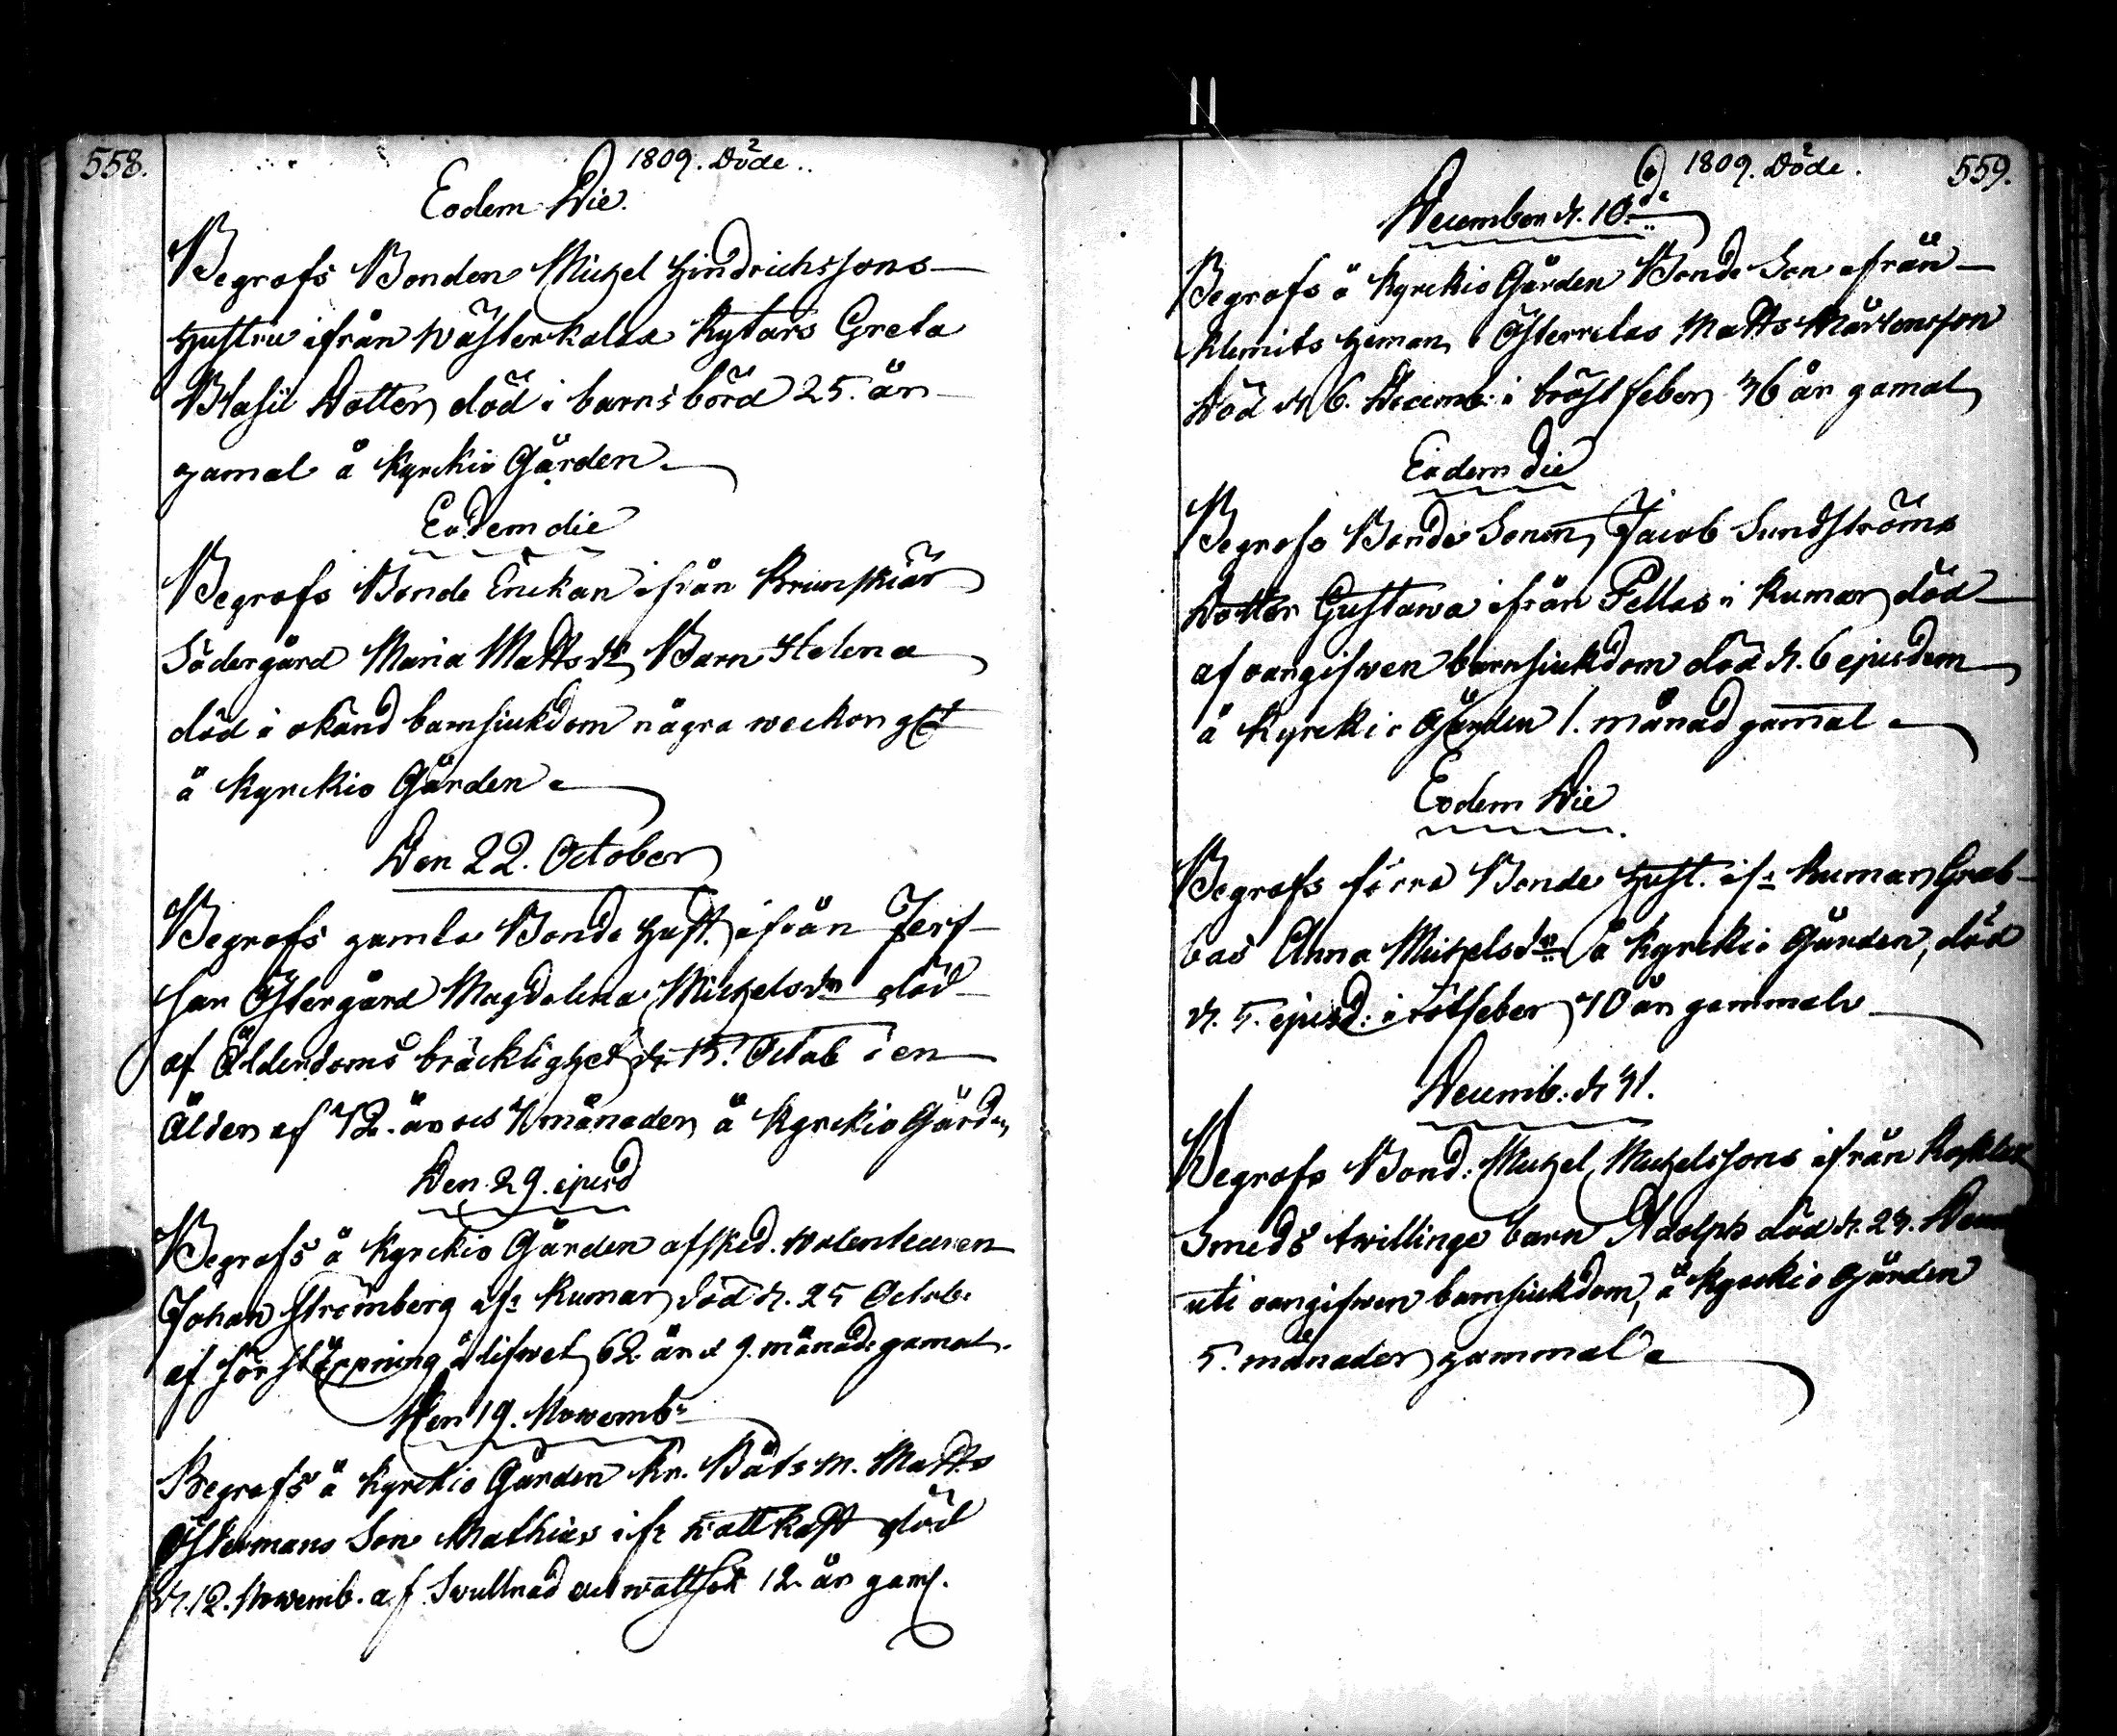 558.
1809. Döde.
Eodem Die.
Begrofs Bonden Michel Hindrichssons
Hustru ifrån Wästerkalax Kytärs Greta
Blasii Dotter död i barnsbörd 25. år
gamal å Kyrckio Gården
Eodem die
Begrofs Bonde Enckan ifrån
Södergård Maria Mattsdr Barn Helena
död i okänd barnsiukdom några weckor glt
å Kyrckio Gården
Den 22. October
Begrofs gamla Bonde Hust. ifrån Jerf
Östergård Magdalena Michelsdr död
af Ålderdoms bräcklighet d. 15. Octob i en
Ålder af 72. år och månader å Kyrckio Gården
Den 29. ejusd
Begrofs å Kyrckio Gården afsked. Volonteuren
Johan Strömberg ifr Rumar död d. 25 Octob.
af förstoppning å lifwet 62 år o 9. månad. gamal.
Den 19. Novemb:
Begrofs å Kyrckio Gården Kr. Båtsm. Matts
Östermans Son Mathias ifr Wattkast död
d. 12. Novemb. af Svullnad och wattsot 12 år gaml.
1809. Döde.
559.
December d. 10de
Begrofs å Kyrckio Gården Bonde Son ifrån
Klemits Heman Österretas Matts Mårtensson
död d. 6. Decemb: i bröstfeber 36 år gamal
Eodem die
Begrofs Bonde Sonen Jacob Sundströms
Dotter Gustawa ifrån Pellas i Rumar död
af oangifwen barnsiukdom död d. 6 ejusdem
å Kyrckio Gården 1. månad gamal
Eodem Die
Begrofs förra Bonde Hust. ifr Rumar Grab-
bas Anna Michelsdr å Kyrckio Gården, död
d. 5. ejusd: i rötfeber 70 år gammal
Decemb: d 31.
Begrofs Bond: Michel Michelssons ifrån
Smeds twillinge barn Adolph död d. 23.
uti oangifwen barnsiukdom, å Kyrckio Gården
5. månader gammal